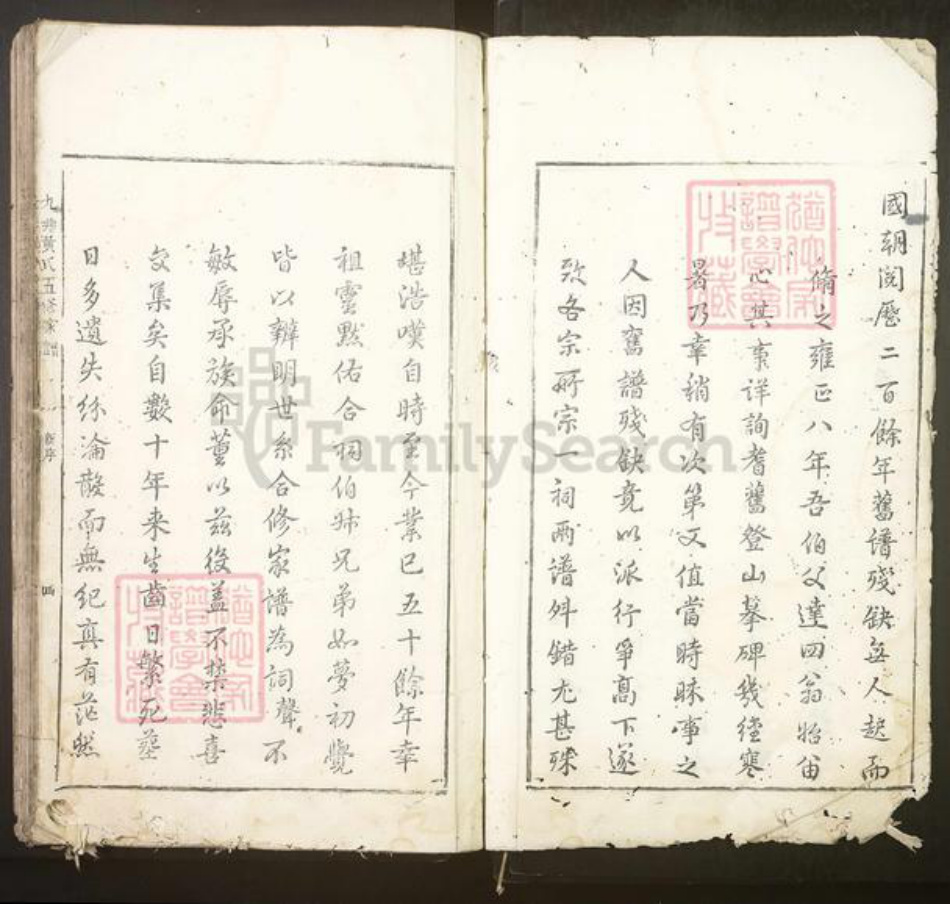 國朝閱歷二百餘年舊譜殘缺無人起而
脩之雍正八年吾伯父達四翁始留
心其事詳詢耆舊登山摹碑幾經寒
暑乃幸稍有次第又值當時昧事之
人因舊譜殘缺竟以派行爭高下遂
致各宗所宗一祠兩譜舛錯尤甚殊
堪浩嘆自時至今業已五十餘年幸
祖靈默佑合祠伯叔兄弟如夢初覺
皆以辨明世系合修家譜為詞聲不
敏辱承族命董以茲役蓋不禁悲喜
交集矣自數十年来生齒日繁死墓
日多遺失紛淪散而無紀真有茫然
九 黃氏五修家譜
新序
四
譜學會
收藏
譜學會
收藏
FamilySearch